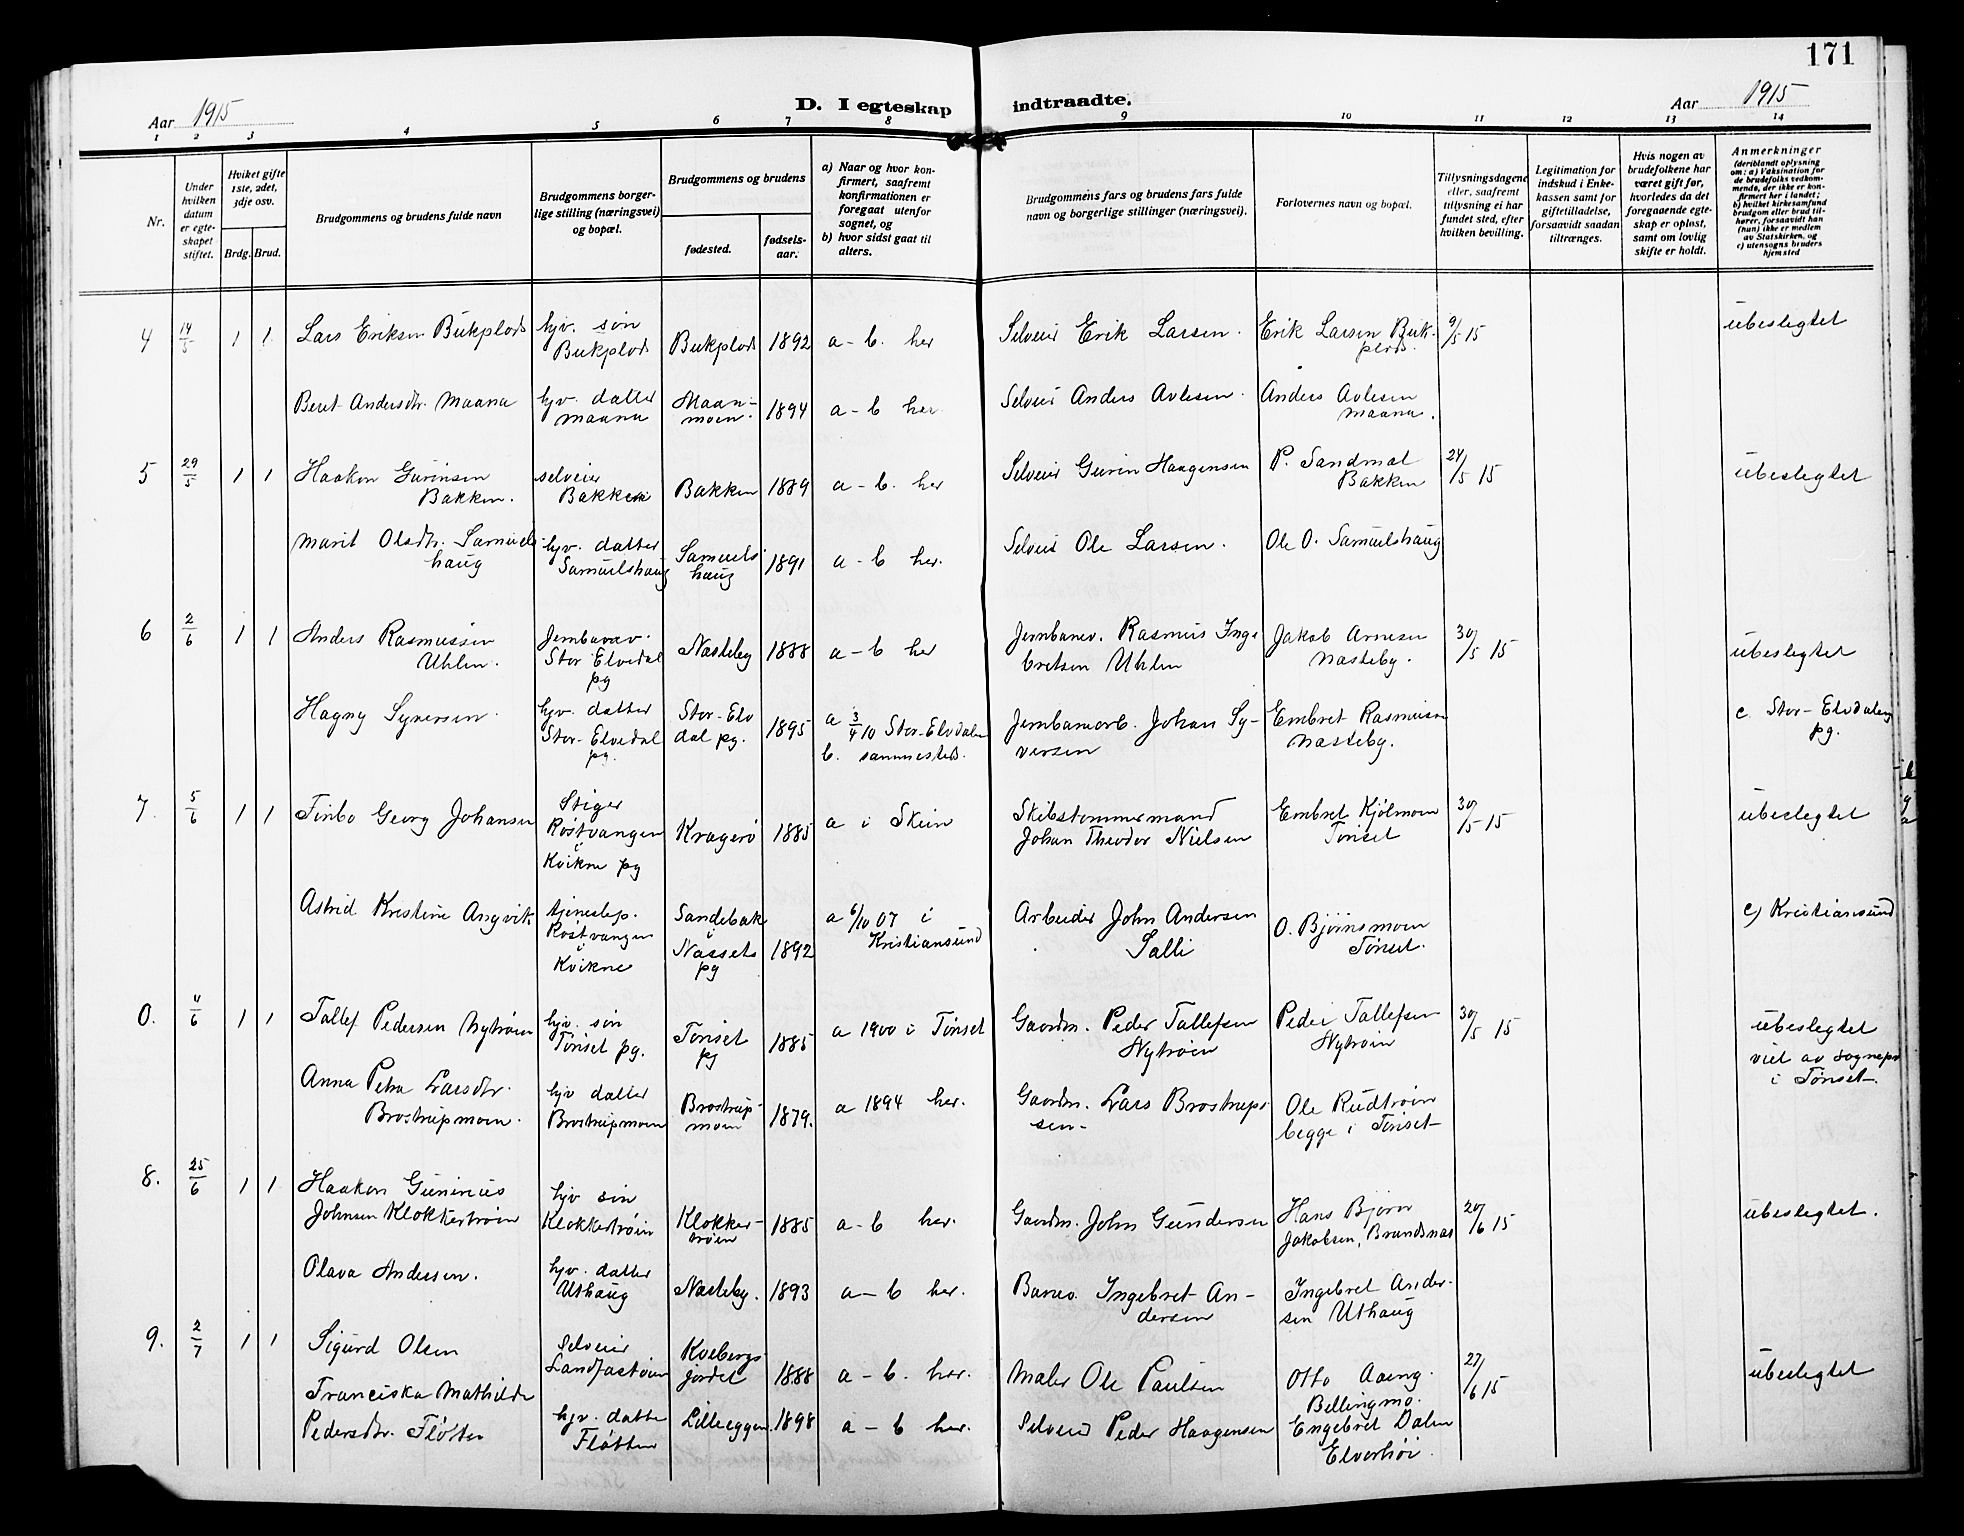 171
Aar 1915
D. I egteskap indtraadte.
Aar 1915
1 2 3 4 5 6 7 8 9 10 11 12 13 14
Nr.
Under hvilken datum er egteskapet stiftet.
Hviket gifte 1ste, 2det, 3dje osv.
Brdg. Brud.
Brudgommens og brudens fulde navn
Brudgommens borgerlige stilling (næringsvei) og bopæl.
Brudgommens og brudens
fødested.
fødselsaar.
a) Naar og hvor konfirmert, saafremt konfirmationen er foregaat utenfor sognet, og
b) hvor sidst gaat til alters.
Brudgommens fars og brudens fars fulde navn og borgerlige stillinger (næringsvei).
Forlovernes navn og bopæl.
Tillysningsdagene eller, saafremt tillysning ei har fundet sted, efter hvilken bevilling.
Legitimation for indskud i Enkekassen samt for giftetilladelse, forsaavidt saadan tiltrænges.
Hvis nogen av brudefolkene har været gift før, hvorledes da det foregaaende egteskap er opløst, samt om lovlig skifte er holdt.
Anmerkninger (deriblandt oplysning om: a) Vaksination for de brudefolks vedkommende, der ikke er konfirmert her i landet; b) hvilket kirkesamfund brudgom eller brud tilhører, forsaavidt han (hun) ikke er medlem av Statskirken, og c) utensogns bruders hjemsted
4 14/5 1 1 Lars Eriksen Bukplads hjv. søn Bukplads Bukplads 1892 a - b. her Selveier Erik Larsen. Erik Larsen Bukplads. 9/5 15 ubeslegtet
Beret Andersdtr. Maana hjv. datter Maana Maanmoen. 1894 a - b her. Selveier Anders Avlesen. Anders Avlesen Maana.
5 29/5 1 1 Haakon Gurinsen Bakken. selveier Bakken Bakken 1889 a - b. her Selveier Gurin Haagensen P. Sandmæl Bakken 24/5 15 ubeslegtet
Marit Olsdtr. Samuelshaug hjv. datter Samuelshaug Samuelshaug 1891 a - b her. Selveier Ole Larsen. Ole O. Samuelshaug
6 2/6 1 1 Anders Rasmussen Uhlen. Jernbanav. Stor Elvedal pg Næsteby 1888 a - b her Jernbanev. Rasmus Ingebretsen Uhlen Jakob Arnesen Næsteby. 30/5 15 ubeslegtet
Hagny Syversen. hjv. datter Stor-Elvedal pg. Stor-Elvdal pg. 1895 a 3/4 10 Stor-Elvdalen b. sammesteds. Jernbanearb. Johan Syversen Embret Rasmussen Næsteby. c. Stor-Elvdalen pg.
7. 5/6 1 1 Tinbo Georg Johansen Stiger Røstvangen i Kvikne pg Kragerø 1885 a i Skien Skibstømmermand Johan Theodor Nielsen Embret Kjølmoen Tønset 30/5 15 ubeslegtet
Astrid Kristine Angvik tjenestep. Røstvangen i Kvikne Sandebak i Næssets pg 1892 a 6/10 07 i Kristiansund Arbeider John Andersen Salli O. Bjørnsmoen Tønset. c) Kristiansund
0. 11/6 1 1 Tallef Pedersen Nytrøen hjv. søn Tønset pg. Tønset pg 1885 a 1900 i Tønset Gaardm. Peder Tallefsen Nytrøen Peder Tallefsen Nytrøen 30/5 15 ubeslegtet viet av sognepr i Tønset.
Anna Petra Larsdtr. Brostrupmoen. hjv datter Brostrupmoen Brostrupmoen 1879. a 1894 her. Gaardm. Lars Brostrupsen- Ole Rudtrøen begge i Tønset
8. 25/6 1 1 Haakon Guninius Johnsen Klokkertrøen hjv søn Klokkertrøen Klokkertrøen 1885 a - b her. Gaardm. John Gundersen Hans Bjørn Jakobsen, Brandsnæs 20/6 15 ubeslegtet.
Olava Andersen. hjv. datter Uthaug Næsteby. 1893 a - b her. Banev. Ingebret Andersen Ingebret Andersen Uthaug
9. 2/7 1 1 Sigurd Olsen Selveier Landfastøien Kvebergsjordet 1888 a - b. her. Maler Ole Paulsen Otto Aaeng. Bellingmo. 27/6 15 ubeslegtet
Franciska Mathilde Pedersdtr. Fløtten hjv. datter Fløtten Lilleeggen. 1898 a - b her. Selveier Peder Haagensen Engebret Dalen Elverhøi.